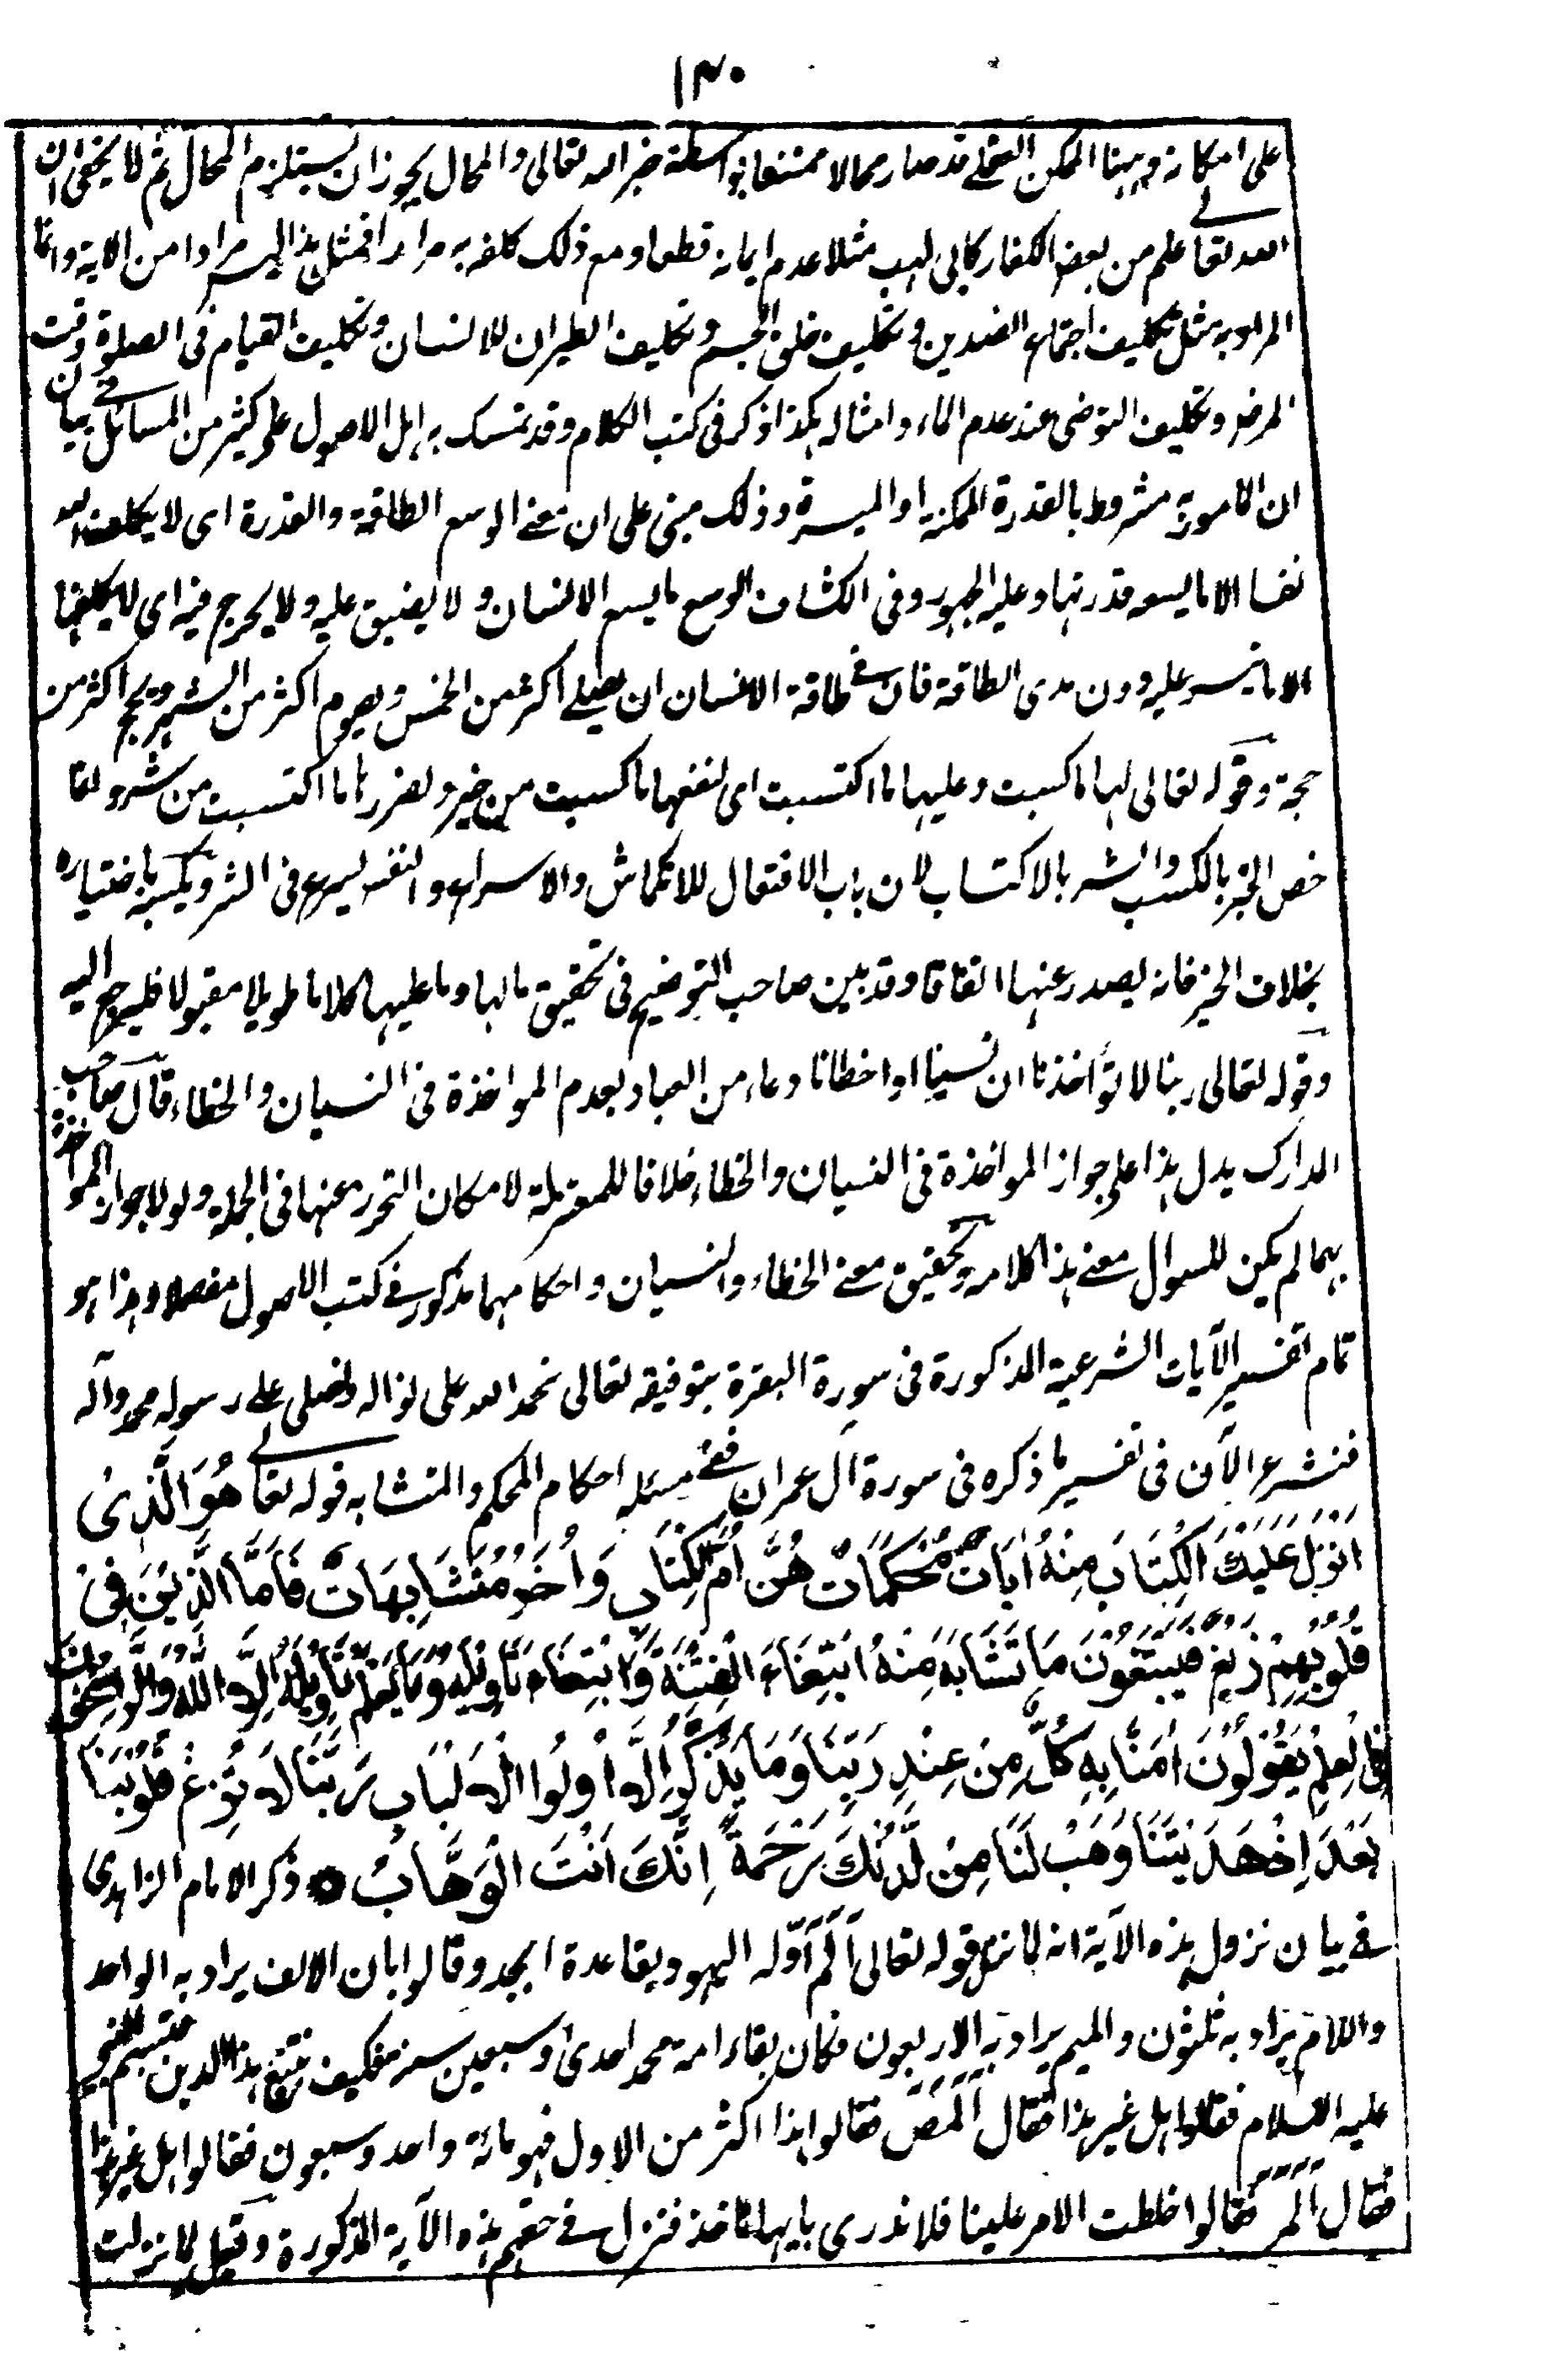 ۱۴۰
على امكانه وههنا الممكن العقلے قد صار محالا ممتنعا بواسطة خبر الله تعالى والمحال يجوز ان يستلزم المحال ثم لا يخفى ان
الله تعالے علم من بعض الكفار كابي لهب مثلا عدم ايمانه قطعا ومع ذلك كلفه به مرارا فمثل هذا ليس مرادا من الآية وانما
المراد به مثل تكليف اجتماع الضدين وتكليف خلق الجسم وتكليف الطيران للانسان وتكليف القيام فى الصلوة وقت
المرض وتكليف التوضى عند عدم الماء وامثاله هكذا ذكر فى كتب الكلام وقد تمسك به اهل الاصول على كثير من المسائل فے بيان
ان المامور به مشروط بالقدرة الممكنة او الميسرة وذلك مبنى على ان معنے الوسع الطاقة والقدرة اى لا يكلف الله
نفسا الا ما يسعه قدرتها وعليه الجمهور وفى الكشاف الوسع ما يسع الانسان ولا يضيق عليه ولا يحرج فيه اى لا يكلفها
الا ما تيسر عليه دون مدى الطاقة فان فے طاقة الانسان ان يصلے اكثر من الخمس ويصوم اكثر من الشهر ويحج اكثر من
حجة وقوله تعالى لها ما كسبت وعليها ما اكتسبت اى لنفعها ما كسبت من خير ولضررها ما اكتسبت من شر وانما
خص الخير بالكسب والشر بالاكتساب لان باب الافتعال للانكماش والاسراع والنفس يسرع فى الشر ويكسبه باختياره
بخلاف الخير فانه يصدر عنها اتفاقا وقد بين صاحب التوضيح فى تحقيق ما لها وما عليها كلاما طويلا مقبولا فليرجع اليه
وقوله تعالى ربنا لا تؤاخذنا ان نسينا او اخطانا دعاء من العباد بعدم المواخذة فى النسيان والخطاء قال صاحب
المدارك يدل هذا على جواز المواخذة فى النسيان والخطاء خلافا للمعتزلة لامكان التحرز عنها فى الجملة ولولا جواز المواخذة
بهما لم يكن للسوال معنے هذا كلامه وتحقيق معنے الخطاء والنسيان واحكامهما مذكور فے كتب الاصول مفصلا وهذا هو
تمام تفسير الآيات الشرعية المذكورة فى سورة البقرة بتوفيقه تعالى نحمد الله على نواله ونصلى على رسوله محمد وآله
فنشرع الآن فى تفسير ما ذكره فى سورة آل عمران ففے مسئلة احكام المحكم والمتشابه قوله تعالے هُوَ الَّذِىْ
اَنْزَلَ عَلَيْكَ الْكِتَابَ مِنْهُ اٰيَاتٌ مُّحْكَمَاتٌ هُنَّ اُمُّ الْكِتَابِ وَاُخَرُ مُتَشَابِهَاتٌ فَاَمَّا الَّذِيْنَ فِىْ
قُلُوْبِهِمْ زَيْغٌ فَيَتَّبِعُوْنَ مَا تَشَابَهَ مِنْهُ ابْتِغَاءَ الْفِتْنَةِ وَابْتِغَاءَ تَاْوِيْلِهٖ وَمَا يَعْلَمُ تَاْوِيْلَهٗ اِلَّا اللّٰهُ وَالرَّاسِخُوْنَ
فِى الْعِلْمِ يَقُوْلُوْنَ اٰمَنَّا بِهٖ كُلٌّ مِّنْ عِنْدِ رَبِّنَا وَمَا يَذَّكَّرُ اِلَّا اُولُوا الْاَلْبَابِ رَبَّنَا لَا تُزِغْ قُلُوْبَنَا
بَعْدَ اِذْ هَدَيْتَنَا وَهَبْ لَنَا مِنْ لَّدُنْكَ رَحْمَةً اِنَّكَ اَنْتَ الْوَهَّابُ ۞ ذكر الامام الزاهدى
فے بيان نزول هذه الآية انه لما نزل قوله تعالى آلٓمٓ اوّله اليهود بقاعدة ابجد وقالوا بان الالف يراد به الواحد
واللام يراد به ثلثون والميم يراد به الاربعون فكان بقاء امة محمد احدى وسبعين سنة فكيف نتبع هذا الدين فتبسم النبى
عليه السلام فقالوا هل غير هذا فقال آلٓمٓصٓ فقالوا هذا اكثر من الاول فهو مائة واحد وسبعون فقالوا هل غير هذا
فقال آلٓمٓرٓ فقالوا خلطت الامر علينا فلا ندرى بايها ناخذ فنزل فے حقهم هذه الآية المذكورة وقيل لما نزلت